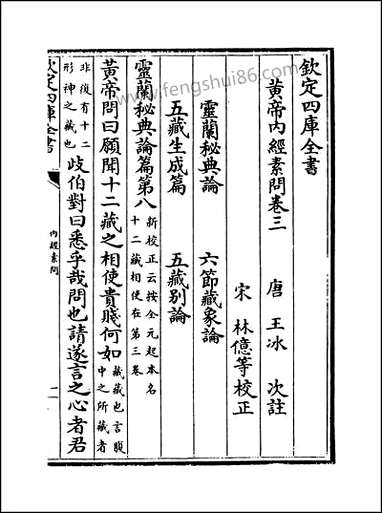 欽定四庫全書
黃帝內經素問卷三
唐 王冰 次註
宋 林億等校正
靈蘭秘典論 六節藏象論
五藏生成篇 五藏别論
靈蘭秘典論篇第八新校正云按全元起本名十二藏相使在第三卷
黃帝問曰願聞十二藏之相使貴賤何如藏藏也言腹中之所藏者
非復有十二形神之藏也歧伯對曰悉乎哉問也請遂言之心者君
欽定四庫全書
內經素問
一
www.fengshui86.com